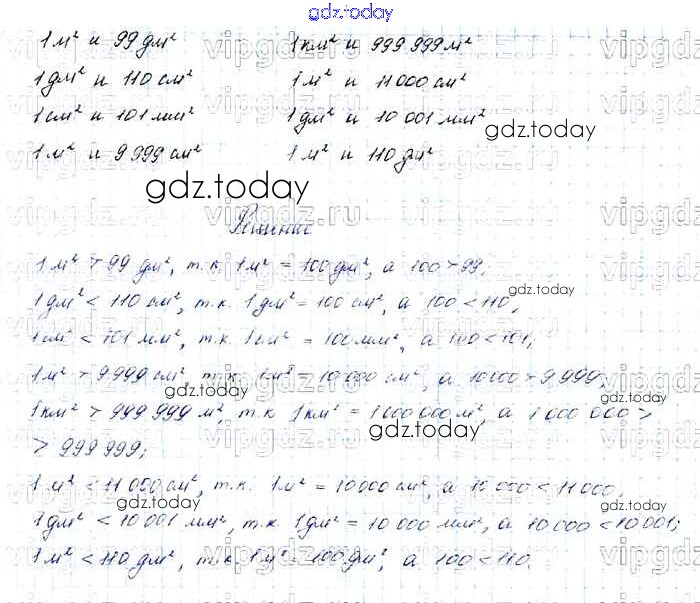 gdz.today
1 м² и 99 дм² 1 км² и 999 999 м²
1 дм² и 110 см² 1 м² и 11 000 см²
1 см² и 101 мм² 1 дм² и 10 001 мм²
gdz.today
1 м² и 9 999 см² 1 м² и 110 дм²
gdz.today
Решение
vipgdz.ru
1 м² > 99 дм², т.к. 1 м² = 100 дм², а 100 > 99;
gdz.today
1 дм² < 110 см², т.к. 1 дм² = 100 см², а 100 < 110;
1 см² < 101 мм², т.к. 1 см² = 100 мм², а 100 < 101;
1 м² > 9 999 см², т.к. 1 м² = 10 000 см², а 10 000 > 9 999;
gdz.today gdz.today
1 км² > 999 999 м², т.к 1 км² = 1 000 000 м², а 1 000 000 >
gdz.today
> 999 999;
1 м² < 11 000 см², т.к. 1 м² = 10 000 см², а 10 000 < 11 000;
gdz.today gdz.today
1 дм² < 10 001 мм², т.к 1 дм² = 10 000 мм², а 10 000 < 10 001;
1 м² < 110 дм², т.к. 1 м² = 100 дм², а 100 < 110.